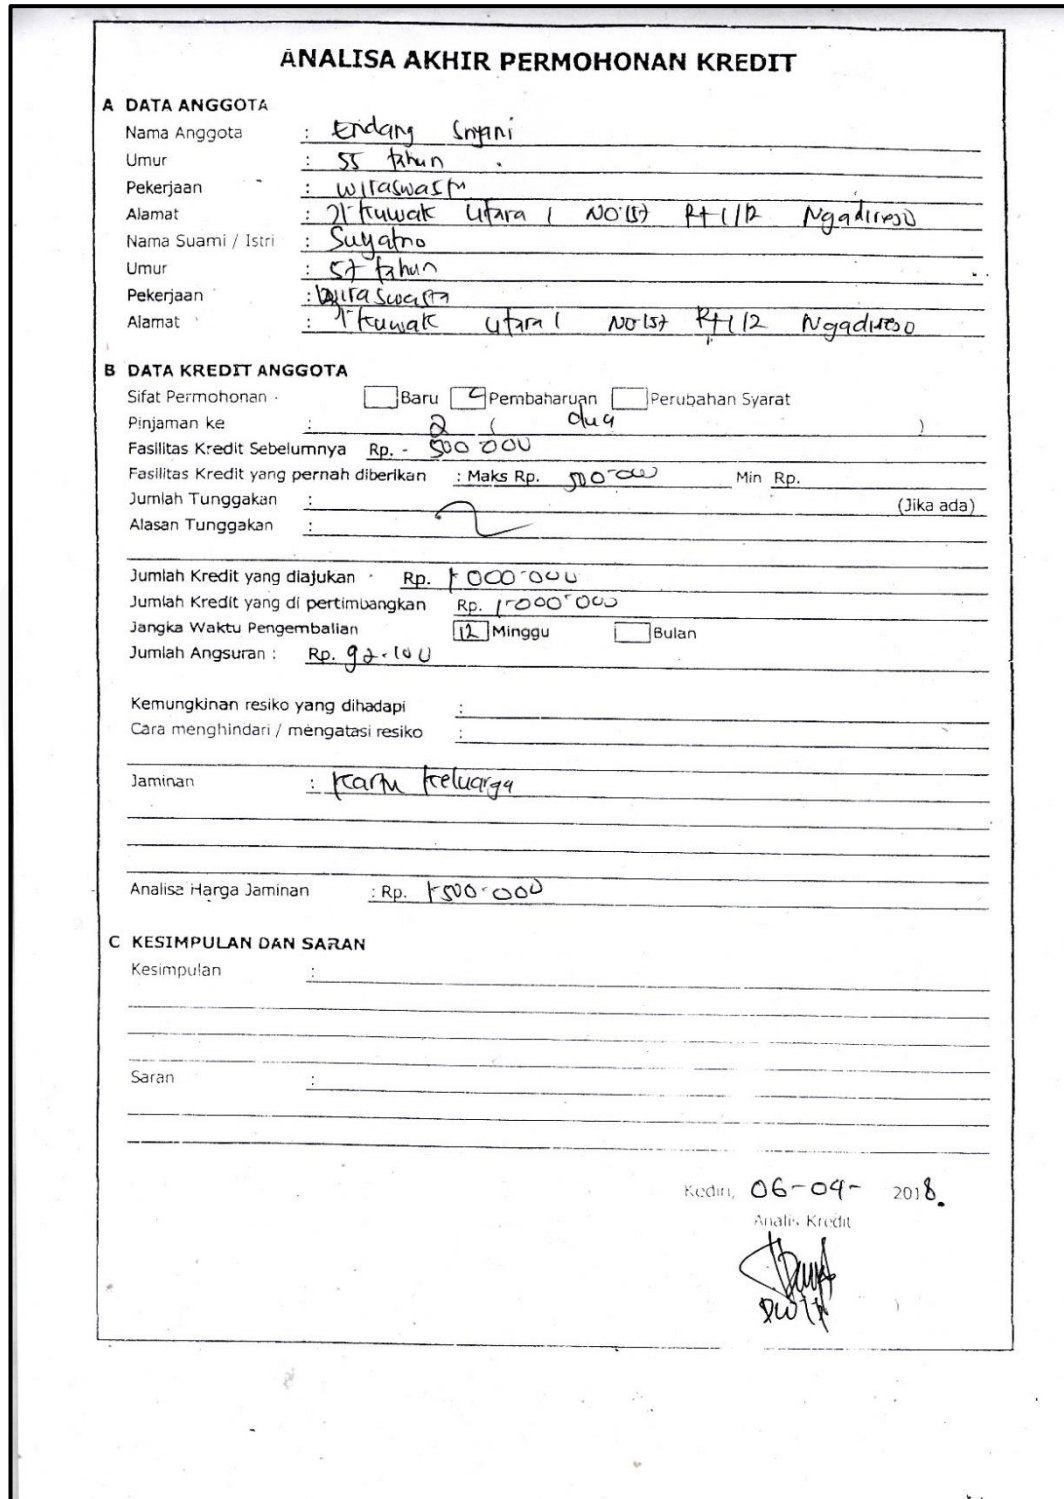 ANALISA AKHIR PERMOHONAN KREDIT
A DATA ANGGOTA
Nama Anggota : Endang
Umur : 55 tahun
Pekerjaan : wiraswasta
Alamat : Jl kuwak utara 1 NO 157 Rt 1/12 Ngadirejo
Nama Suami / Istri : Suyatno
Umur : 57 tahun
Pekerjaan : wiraswasta
Alamat : Jl kuwak utara 1 NO 157 Rt 1/12 Ngadirejo
B DATA KREDIT ANGGOTA
Sifat Permohonan Baru Pembaharuan Perubahan Syarat
Pinjaman ke : 2 ( dua )
Fasilitas Kredit Sebelumnya Rp. - 500 000
Fasilitas Kredit yang pernah diberikan : Maks Rp. 500-000 Min Rp.
Jumlah Tunggakan : (Jika ada)
Alasan Tunggakan :
Jumlah Kredit yang diajukan Rp. 1-000-000
Jumlah Kredit yang di pertimbangkan Rp. 1-000-000
Jangka Waktu Pengembalian 12 Minggu Bulan
Jumlah Angsuran : Rp. 92.100
Kemungkinan resiko yang dihadapi :
Cara menghindari / mengatasi resiko :
Jaminan : Kartu Keluarga
Analisa Harga Jaminan : Rp. 1-500-000
C KESIMPULAN DAN SARAN
Kesimpulan :
Saran :
Kediri, 06-04- 2018.
Analis Kredit